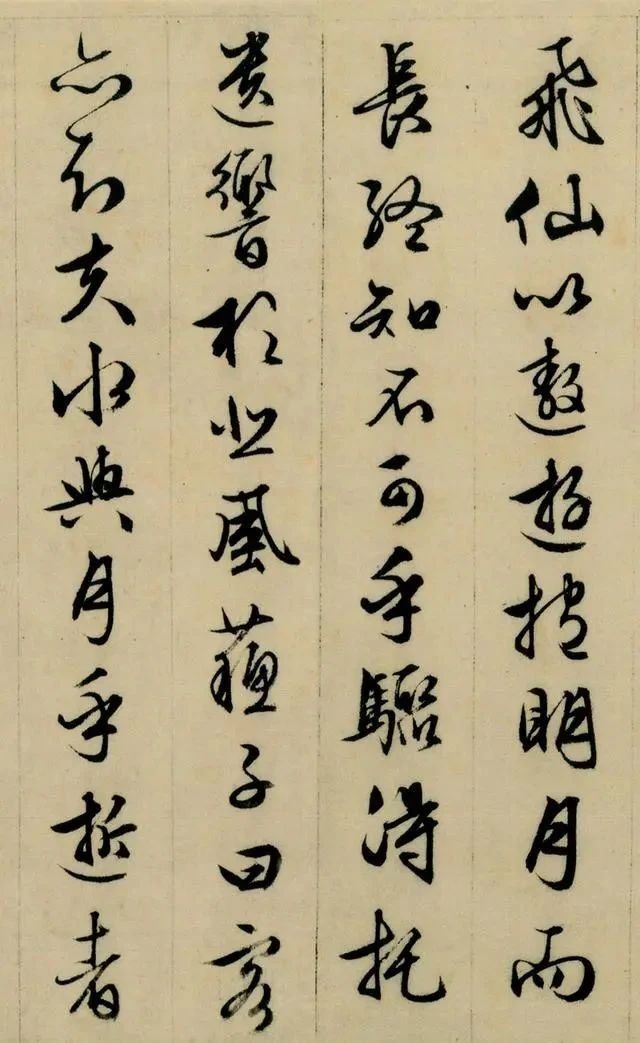 飛仙以遨遊挹明月而
長終知不可乎驟得托
遺響於悲風蘇子曰客
亦知夫水與月乎逝者